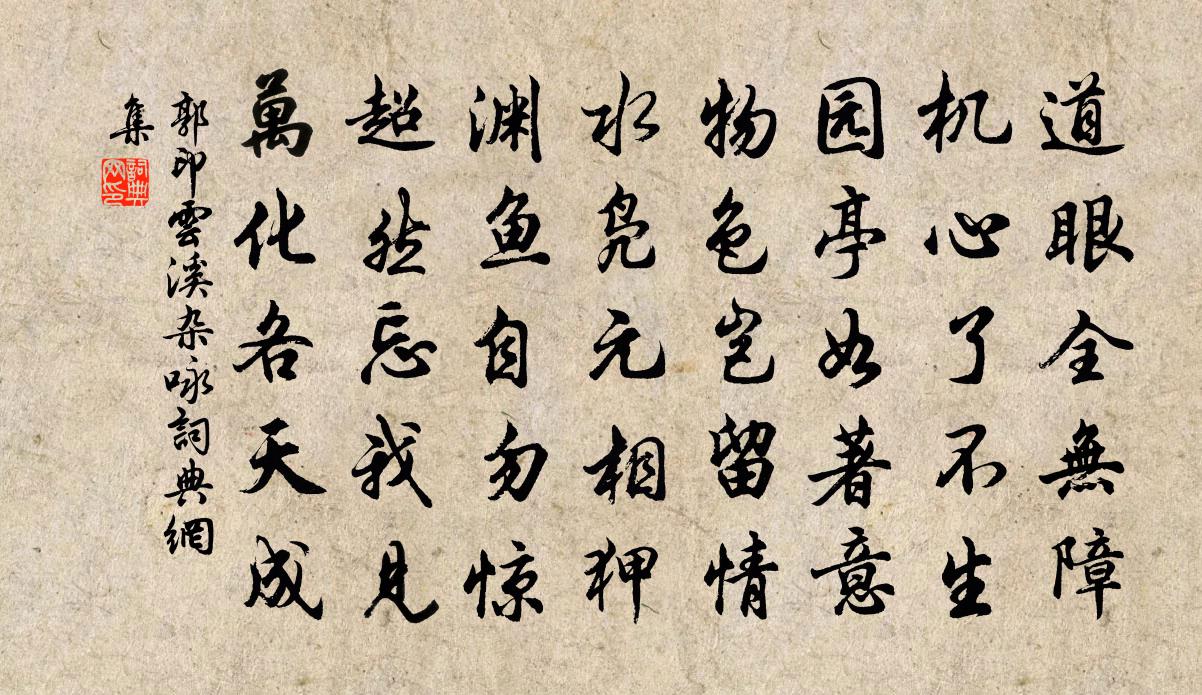 道眼全無障
机心了不生
园亭如著意
物色岂留情
水凫元相狎
渊鱼自勿惊
超然忘我見
萬化各天成
郭印雲溪杂咏詞典網
集
詞典網印